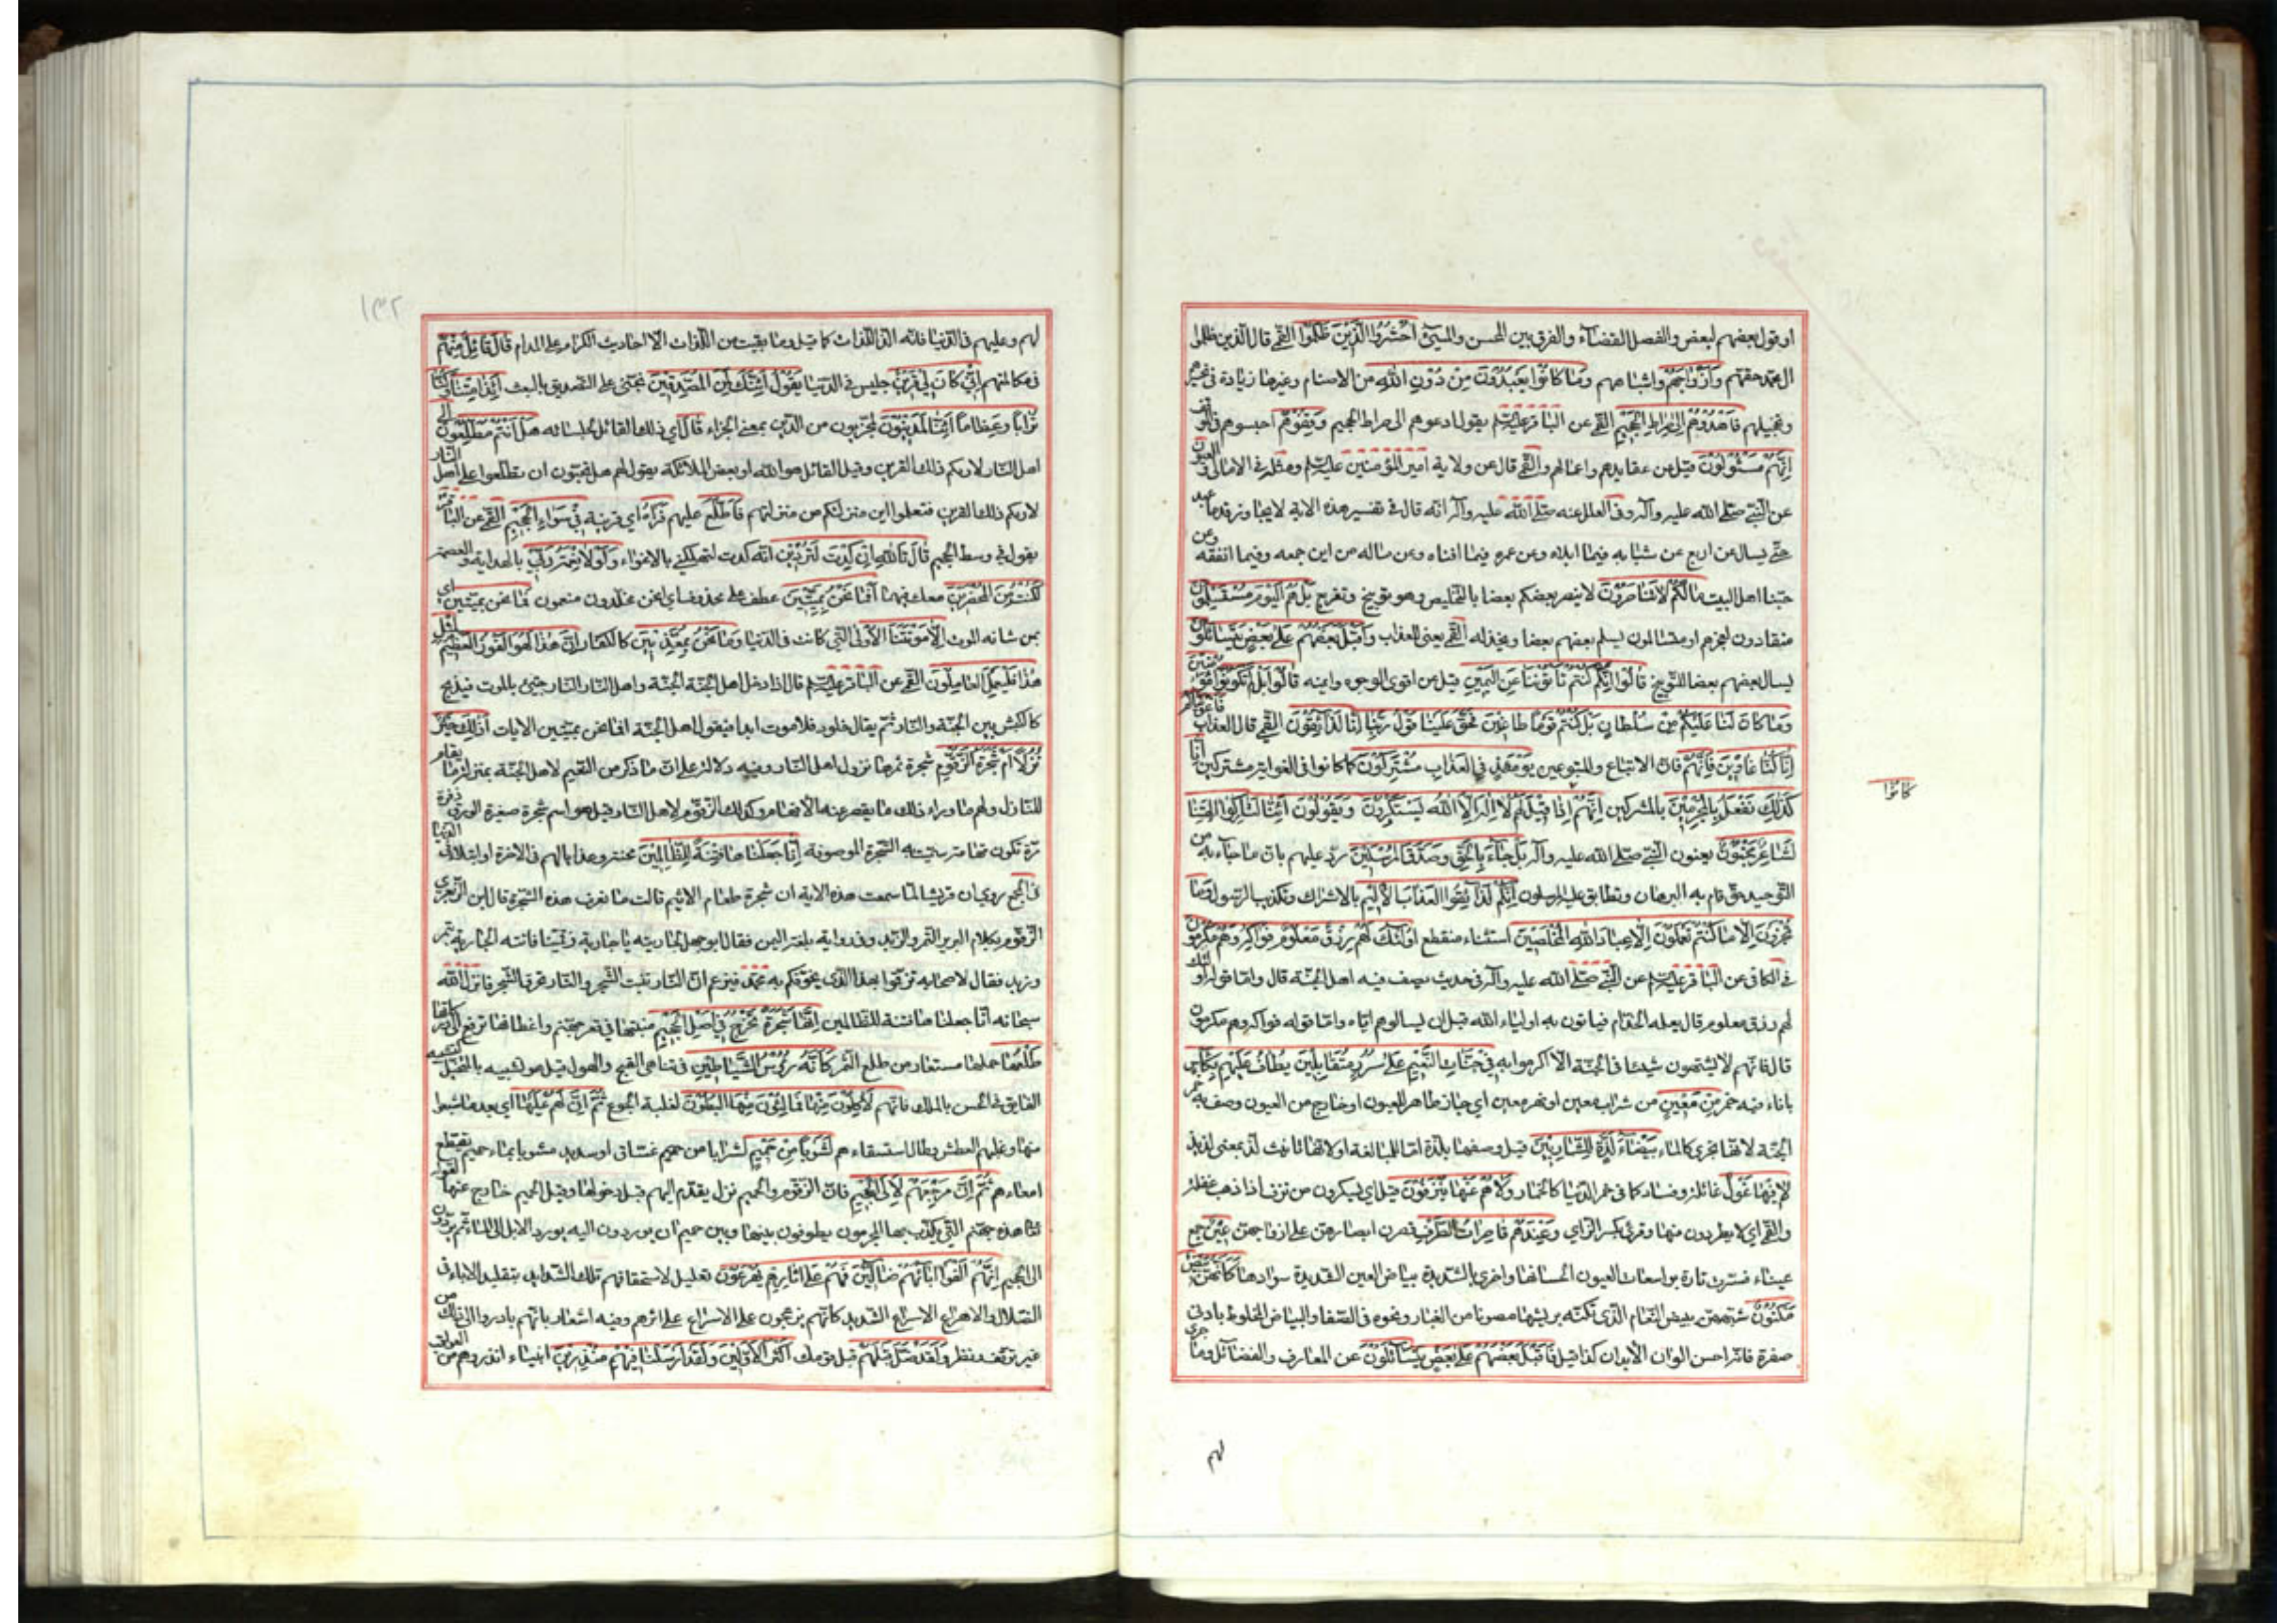 او قول بعضهم لبعض والفصل القضاء والفرق بين المحسن والمسيئ اُحْشُرُوا الَّذِينَ ظَلَمُوا القمي قال الذين ظلموا
ال محمد حقهم وَاَزْوَاجَهُمْ واشباههم وَمَا كَانُوا يَعْبُدُونَ مِنْ دُونِ اللهِ من الاصنام وغيرها زيادة في تحسيرهم
وتخجيلهم فَاهْدُوهُمْ اِلَى صِرَاطِ الْجَحِيمِ القمي عن الباقر عليه السلم يقول ادعوهم الى صراط الجحيم وَقِفُوهُمْ احبسوهم في الموقف
اِنَّهُمْ مَسْئُولُونَ قيل عن عقايدهم واعمالهم والقمي قال عن ولاية امير المؤمنين عليه السلم ومثله في الامالي والعيون
عن النبي صلى الله عليه وآله وفي العلل عنه صلى الله عليه وآله انه قال في تفسير هذه الاية لا يجاوز قدما عبد
حتى يسال عن اربع عن شبابه فيما ابلاه وعن عمره فيما افناه وعن ماله من اين جمعه وفيما انفقه وعن
حبنا اهل البيت مَا لَكُمْ لَا تَنَاصَرُونَ لا ينصر بعضكم بعضا بالتخليص وهو توبيخ وتقريع بَلْ هُمُ الْيَوْمَ مُسْتَسْلِمُونَ
منقادون لعجزهم او متسالمون يسلم بعضهم بعضا ويخذله القمي يعني للعذاب وَاَقْبَلَ بَعْضُهُمْ عَلَى بَعْضٍ يَتَسَائَلُونَ
يسال بعضهم بعضا للتوبيخ قَالُوا اِنَّكُمْ كُنْتُمْ تَاْتُونَنَا عَنِ الْيَمِينِ قيل عن اقوى الوجوه وايمنه قَالُوا بَلْ لَمْ تَكُونُوا مُؤْمِنِينَ
وَمَا كَانَ لَنَا عَلَيْكُمْ مِنْ سُلْطَانٍ بَلْ كُنْتُمْ قَوْمًا طَاغِينَ فَحَقَّ عَلَيْنَا قَوْلُ رَبِّنَا اِنَّا لَذَائِقُونَ القمي قال العذاب فَاَغْوَيْنَاكُمْ
اِنَّا كُنَّا غَاوِينَ فَاِنَّهُمْ فان الاتباع والمتبوعين يَوْمَئِذٍ فِي الْعَذَابِ مُشْتَرِكُونَ كما كانوا في الغواية مشتركين اِنَّا
كَذَلِكَ نَفْعَلُ بِالْمُجْرِمِينَ بالمشركين اِنَّهُمْ اِذَا قِيلَ لَهُمْ لَا اِلَهَ اِلَّا اللهُ يَسْتَكْبِرُونَ وَيَقُولُونَ اَئِنَّا لَتَارِكُوا الِهَتِنَا
كَانُوا
لِشَاعِرٍ مَجْنُونٍ يعنون النبي صلى الله عليه وآله بَلْ جَاءَ بِالْحَقِّ وَصَدَّقَ الْمُرْسَلِينَ رد عليهم بان ما جاء به من
التوحيد حق قام به البرهان وتطابق عليه المرسلون اِنَّكُمْ لَذَائِقُوا الْعَذَابِ الْاَلِيمِ بالاشراك وتكذيب الرسول وَمَا
تُجْزَوْنَ اِلَّا مَا كُنْتُمْ تَعْمَلُونَ اِلَّا عِبَادَ اللهِ الْمُخْلَصِينَ استثناء منقطع اُولَئِكَ لَهُمْ رِزْقٌ مَعْلُومٌ فَوَاكِهُ وَهُمْ مُكْرَمُونَ
في الكافي عن الباقر عليه السلم عن النبي صلى الله عليه وآله في حديث يصف فيه اهل الجنة قال واما قوله اولئك
لهم رزق معلوم قال يعلمه الخدام فياتون به اولياء الله قبل ان يسالوهم اياه واما قوله فواكه وهم مكرمون
قال فانهم لا يشتهون شيئا في الجنة الا اكرموا به فِي جَنَّاتِ النَّعِيمِ عَلَى سُرُرٍ مُتَقَابِلِينَ يُطَافُ عَلَيْهِمْ بِكَاْسٍ
باناء فيه خمر مِنْ مَعِينٍ من شراب معين او نهر معين اي جار ظاهر للعيون او خارج من العيون وصف به خمر
الجنة لانها تجري كالماء بَيْضَاءَ لَذَّةٍ لِلشَّارِبِينَ قيل وصفها بلذة اما للمبالغة او لانها تانيث لذ بمعنى لذيذ
لَا فِيهَا غَوْلٌ غائلة وفساد كما في خمر الدنيا كالخمار وَلَا هُمْ عَنْهَا يُنْزَفُونَ قيل اي يسكرون من نزف اذا ذهب عقله
والقمي اي لا يطردون منها وقرئ بكسر الزاي وَعِنْدَهُمْ قَاصِرَاتُ الطَّرْفِ قصرن ابصارهن على ازواجهن عِينٌ جمع
عيناء فسرت تارة بواسعات العيون لحسانها واخرى بالشديدة بياض العين الشديدة سوادها كَاَنَّهُنَّ بَيْضٌ
مَكْنُونٌ شبههن ببيض النعام الذي تكنه بريشها مصونا من الغبار ونحوه في الصفاء والبياض المخلوط بادنى
صفرة فانه احسن الوان الابدان كذا قيل فَاَقْبَلَ بَعْضُهُمْ عَلَى بَعْضٍ يَتَسَائَلُونَ عن المعارف والفضائل وما جرى
لهم
١٣٢
لهم وعليهم في الدنيا فانه الذ اللذات كما قيل وما بقيت من اللذات الا احاديث الكرام على المدام قَالَ قَائِلٌ مِنْهُمْ
في مكالمتهم اِنِّي كَانَ لِي قَرِينٌ جليس في الدنيا يَقُولُ اَئِنَّكَ لَمِنَ الْمُصَدِّقِينَ يوبخني على التصديق بالبعث اَئِذَا مِتْنَا وَكُنَّا
تُرَابًا وَعِظَامًا اَئِنَّا لَمَدِينُونَ لمجزيون من الدين بمعنى الجزاء قَالَ اي ذلك القائل لجلسائه هَلْ اَنْتُمْ مُطَّلِعُونَ الى
اهل النار لاريكم ذلك القرين وقيل القائل هو الله او بعض الملائكة يقول لهم هل تحبون ان تطلعوا على اهل النار
لاريكم ذلك القرين فتعلموا اين منزلتكم من منزلتهم فَاطَّلَعَ عليهم فَرَاَهُ اي قرينه فِي سَوَاءِ الْجَحِيمِ القمي عن الباقر
يقول في وسط الجحيم قَالَ تَاللهِ اِنْ كِدْتَ لَتُرْدِينِ انه كدت لتهلكني بالاغواء وَلَوْلَا نِعْمَةُ رَبِّي بالهداية والعصمة
لَكُنْتُ مِنَ الْمُحْضَرِينَ معك فيها اَفَمَا نَحْنُ بِمَيِّتِينَ عطف على محذوف اي انحن مخلدون منعمون فما نحن بميتين اي
بمن شانه الموت اِلَّا مَوْتَتَنَا الْاُولَى التي كانت في الدنيا وَمَا نَحْنُ بِمُعَذَّبِينَ كالكفار اِنَّ هَذَا لَهُوَ الْفَوْزُ الْعَظِيمُ لِمِثْلِ
هَذَا فَلْيَعْمَلِ الْعَامِلُونَ القمي عن الباقر عليه السلم قال اذا دخل اهل الجنة الجنة واهل النار النار جيئ بالموت فيذبح
كالكبش بين الجنة والنار ثم يقال خلود فلا موت ابدا فيقول اهل الجنة افما نحن بميتين الايات اَذَلِكَ خَيْرٌ
نُزُلًا اَمْ شَجَرَةُ الزَّقُّومِ شجرة ثمرها نزول اهل النار وفيه دلالة على ان ما ذكر من النعيم لاهل الجنة بمنزلة ما يقام
للنازل ولهم ما وراء ذلك ما يقصر عنه الافهام وكذلك الزقوم لاهل النار قيل هو اسم شجرة صغيرة الورق ذفرة
مرة تكون بتهامة سميت به الشجرة الموصوفة اِنَّا جَعَلْنَاهَا فِتْنَةً لِلظَّالِمِينَ محنة وعذابا لهم في الاخرة او ابتلاء في الدنيا
في المجمع روي ان قريشا لما سمعت هذه الاية ان شجرة طعام الاثيم قالت ما نعرف هذه الشجرة قال ابن الزبعري
الزقوم بكلام البربر التمر والزبد وفي رواية بلغة اليمن فقال ابو جهل لجاريته يا جارية زقمينا فاتته الجارية بتمر
وزبد فقال لاصحابه تزقموا بهذا الذي يخوفكم به محمد فيزعم ان النار تنبت الشجر والنار تحرق الشجر فانزل الله
سبحانه انا جعلناها فتنة للظالمين اِنَّهَا شَجَرَةٌ تَخْرُجُ فِي اَصْلِ الْجَحِيمِ منبتها في قعر جهنم واغصانها ترفع الى دركاتها
طَلْعُهَا حملها مستعار من طلع التمر كَاَنَّهُ رُؤُسُ الشَّيَاطِينِ في تناهى القبح والهول قيل هو تشبيه بالمتخيل كتشبيه
الفايق في الحسن بالملك فَاِنَّهُمْ لَاكِلُونَ مِنْهَا فَمَالِئُونَ مِنْهَا الْبُطُونَ لغلبة الجوع ثُمَّ اِنَّ لَهُمْ عَلَيْهَا اي بعد ما شبعوا
منها وغلبهم العطش وطال استسقاءهم لَشَوْبًا مِنْ حَمِيمٍ لشرابا من حميم غساق او صديد مشوبا بماء حميم يقطع
امعاءهم ثُمَّ اِنَّ مَرْجِعَهُمْ لَاِلَى الْجَحِيمِ فان الزقوم والحميم نزل يقدم اليهم قبل دخولها وقيل الحميم خارج عنها لقوله
تعالى هذه جهنم التي يكذب بها المجرمون يطوفون بينها وبين حميم ان يوردون اليه يورد الابل الى الماء ثم يردون
الى الجحيم اِنَّهُمْ اَلْفَوْا ابَائَهُمْ ضَالِّينَ فَهُمْ عَلَى اثَارِهِمْ يُهْرَعُونَ تعليل لاستحقاقهم تلك الشدايد بتقليد الاباء في
الضلال والاهراع الاسراع الشديد كانهم يزعجون على الاسراع على اثرهم وفيه اشعار بانهم بادروا الى ذلك من
غير توقف ونظر وَلَقَدْ ضَلَّ قَبْلَهُمْ قبل قومك اَكْثَرُ الْاَوَّلِينَ وَلَقَدْ اَرْسَلْنَا فِيهِمْ مُنْذِرِينَ انبياء انذروهم من العواقب